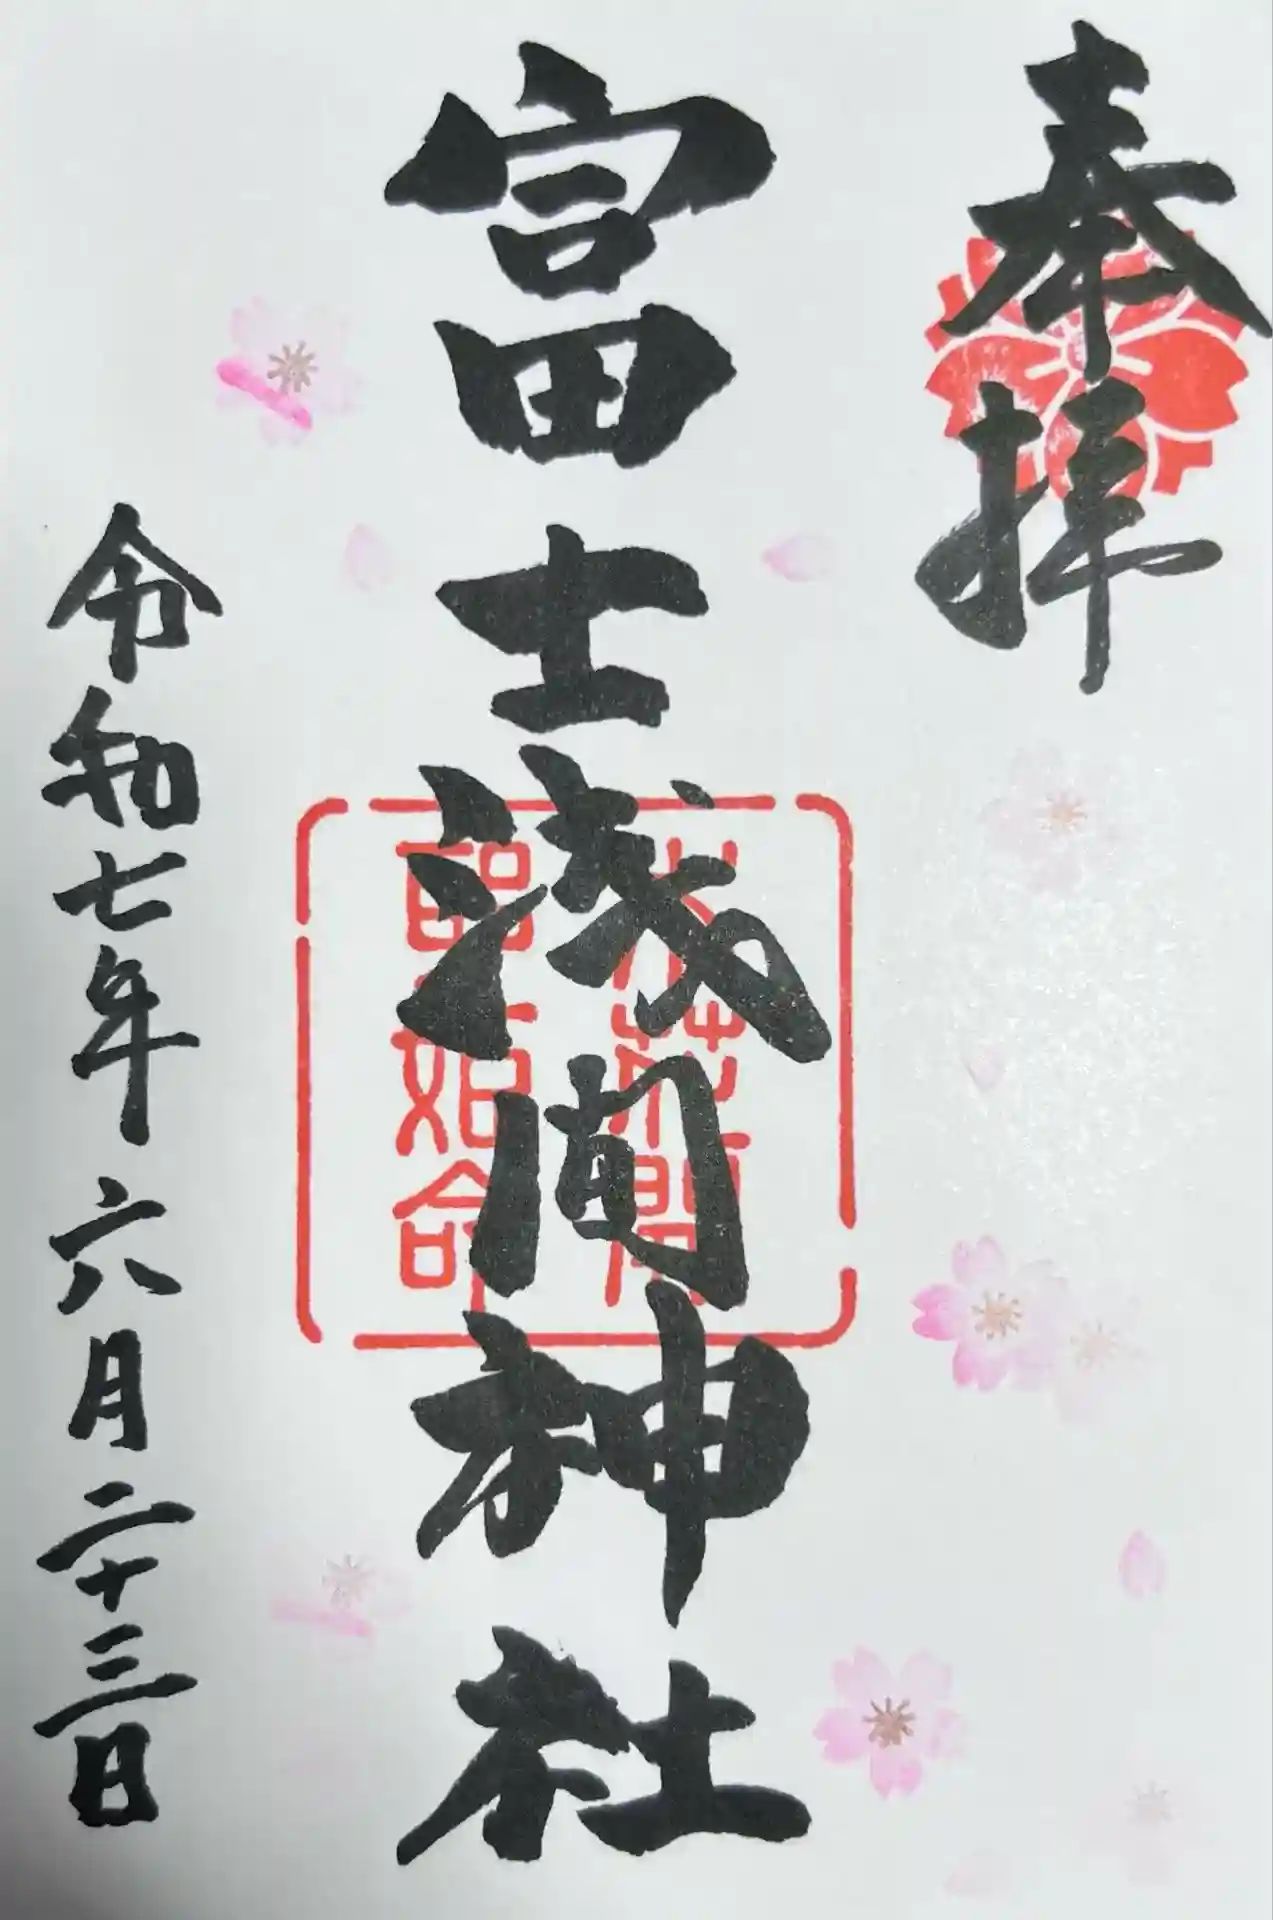 奉拝
富士浅间神社
木花開
耶姫命
令和七年六月二十三日